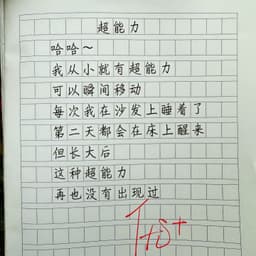 超能力
哈哈~
我从小就有超能力
可以瞬间移动
每次我在沙发上睡着了
第二天都会在床上醒来
但长大后
这种超能力
再也没有出现过